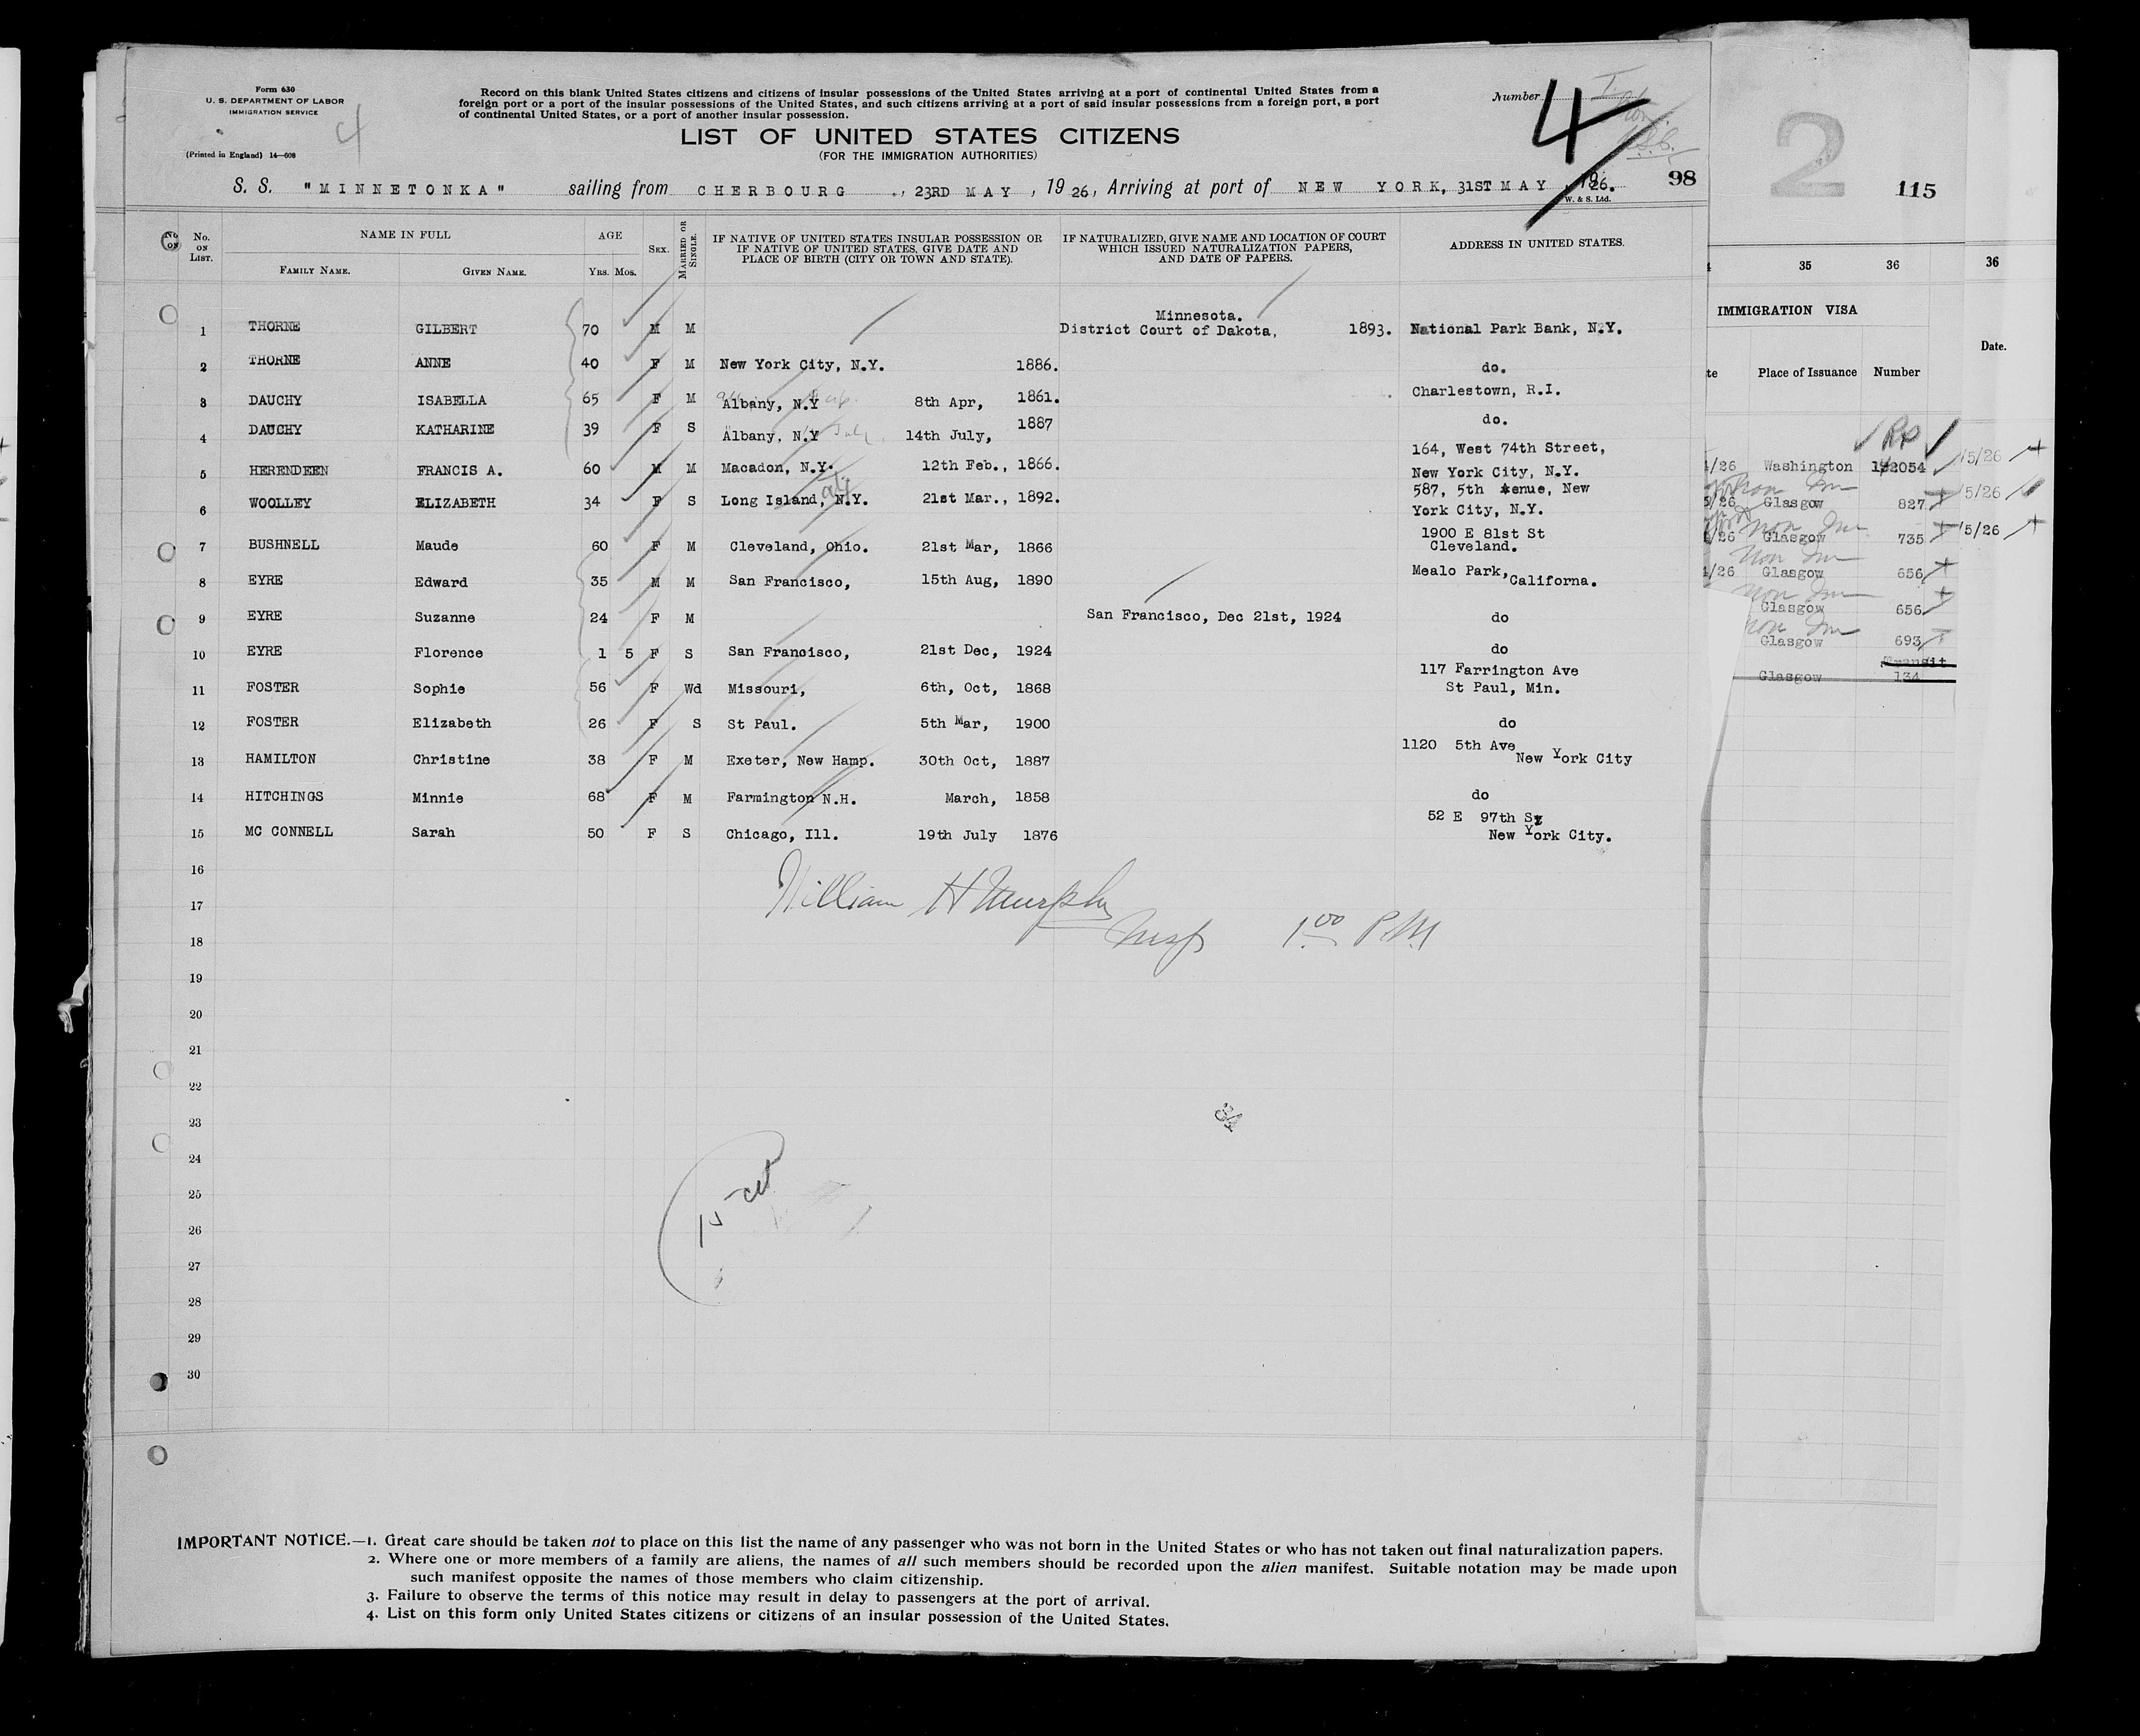 Form 630
U. S. DEPARTMENT OF LABOR
IMMIGRATION SERVICE
(Printed in England) 14—608
4
Record on this blank United States citizens and citizens of insular possessions of the United States arriving at a port of continental United States from a
foreign port or a port of the insular possessions of the United States, and such citizens arriving at a port of said insular possessions from a foreign port, a port
of continental United States, or a port of another insular possession.
Number 4
LIST OF UNITED STATES CITIZENS
(FOR THE IMMIGRATION AUTHORITIES)
S. S. "MINNETONKA" sailing from CHERBOURG , 23RD MAY , 1926, Arriving at port of NEW YORK, 31ST MAY , 1926. 98
W. & S. Ltd.
No. ON LIST. NAME IN FULL AGE SEX. MARRIED OR SINGLE. IF NATIVE OF UNITED STATES INSULAR POSSESSION OR IF NATIVE OF UNITED STATES, GIVE DATE AND PLACE OF BIRTH (CITY OR TOWN AND STATE). IF NATURALIZED, GIVE NAME AND LOCATION OF COURT WHICH ISSUED NATURALIZATION PAPERS, AND DATE OF PAPERS. ADDRESS IN UNITED STATES.
FAMILY NAME. GIVEN NAME. Yrs. Mos.
Minnesota.
1 THORNE GILBERT 70 M M District Court of Dakota, 1893. National Park Bank, N.Y.
2 THORNE ANNE 40 F M New York City, N.Y. 1886. do.
3 DAUCHY ISABELLA 65 F M Albany, N.Y 8th Apr, 1861. Charlestown, R.I.
4 DAUCHY KATHARINE 39 F S Albany, N.Y 14th July, 1887 do.
164, West 74th Street,
5 HERENDEEN FRANCIS A. 60 M M Macadon, N.Y. 12th Feb., 1866. New York City, N.Y.
587, 5th Avenue, New
6 WOOLLEY ELIZABETH 34 F S Long Island, N.Y. 21st Mar., 1892. York City, N.Y.
1900 E 81st St
7 BUSHNELL Maude 60 F M Cleveland, Ohio. 21st Mar, 1866 Cleveland.
8 EYRE Edward 35 M M San Francisco, 15th Aug, 1890 Mealo Park, Californa.
9 EYRE Suzanne 24 F M San Francisco, Dec 21st, 1924 do
10 EYRE Florence 1 5 F S San Francisco, 21st Dec, 1924 do
117 Farrington Ave
11 FOSTER Sophie 56 F Wd Missouri, 6th, Oct, 1868 St Paul, Min.
12 FOSTER Elizabeth 26 F S St Paul. 5th Mar, 1900 do
1120 5th Ave
13 HAMILTON Christine 38 F M Exeter, New Hamp. 30th Oct, 1887 New York City
14 HITCHINGS Minnie 68 F M Farmington N.H. March, 1858 do
52 E 97th St
15 MC CONNELL Sarah 50 F S Chicago, Ill. 19th July 1876 New York City.
16
17 William H Murphy
18 Insp 1.00 P.M
19
20
21
22
23 34
24
25
26
27
28
29
30
IMPORTANT NOTICE.—1. Great care should be taken not to place on this list the name of any passenger who was not born in the United States or who has not taken out final naturalization papers.
2. Where one or more members of a family are aliens, the names of all such members should be recorded upon the alien manifest. Suitable notation may be made upon
such manifest opposite the names of those members who claim citizenship.
3. Failure to observe the terms of this notice may result in delay to passengers at the port of arrival.
4. List on this form only United States citizens or citizens of an insular possession of the United States.
2
115
35 36 36
IMMIGRATION VISA
Date.
Place of Issuance Number
/26 Washington 192054 5/26
/26 Glasgow 827 5/26
/26 Glasgow 735 5/26
/26 Glasgow 656
Glasgow 656
Glasgow 693
Transit
Glasgow 134